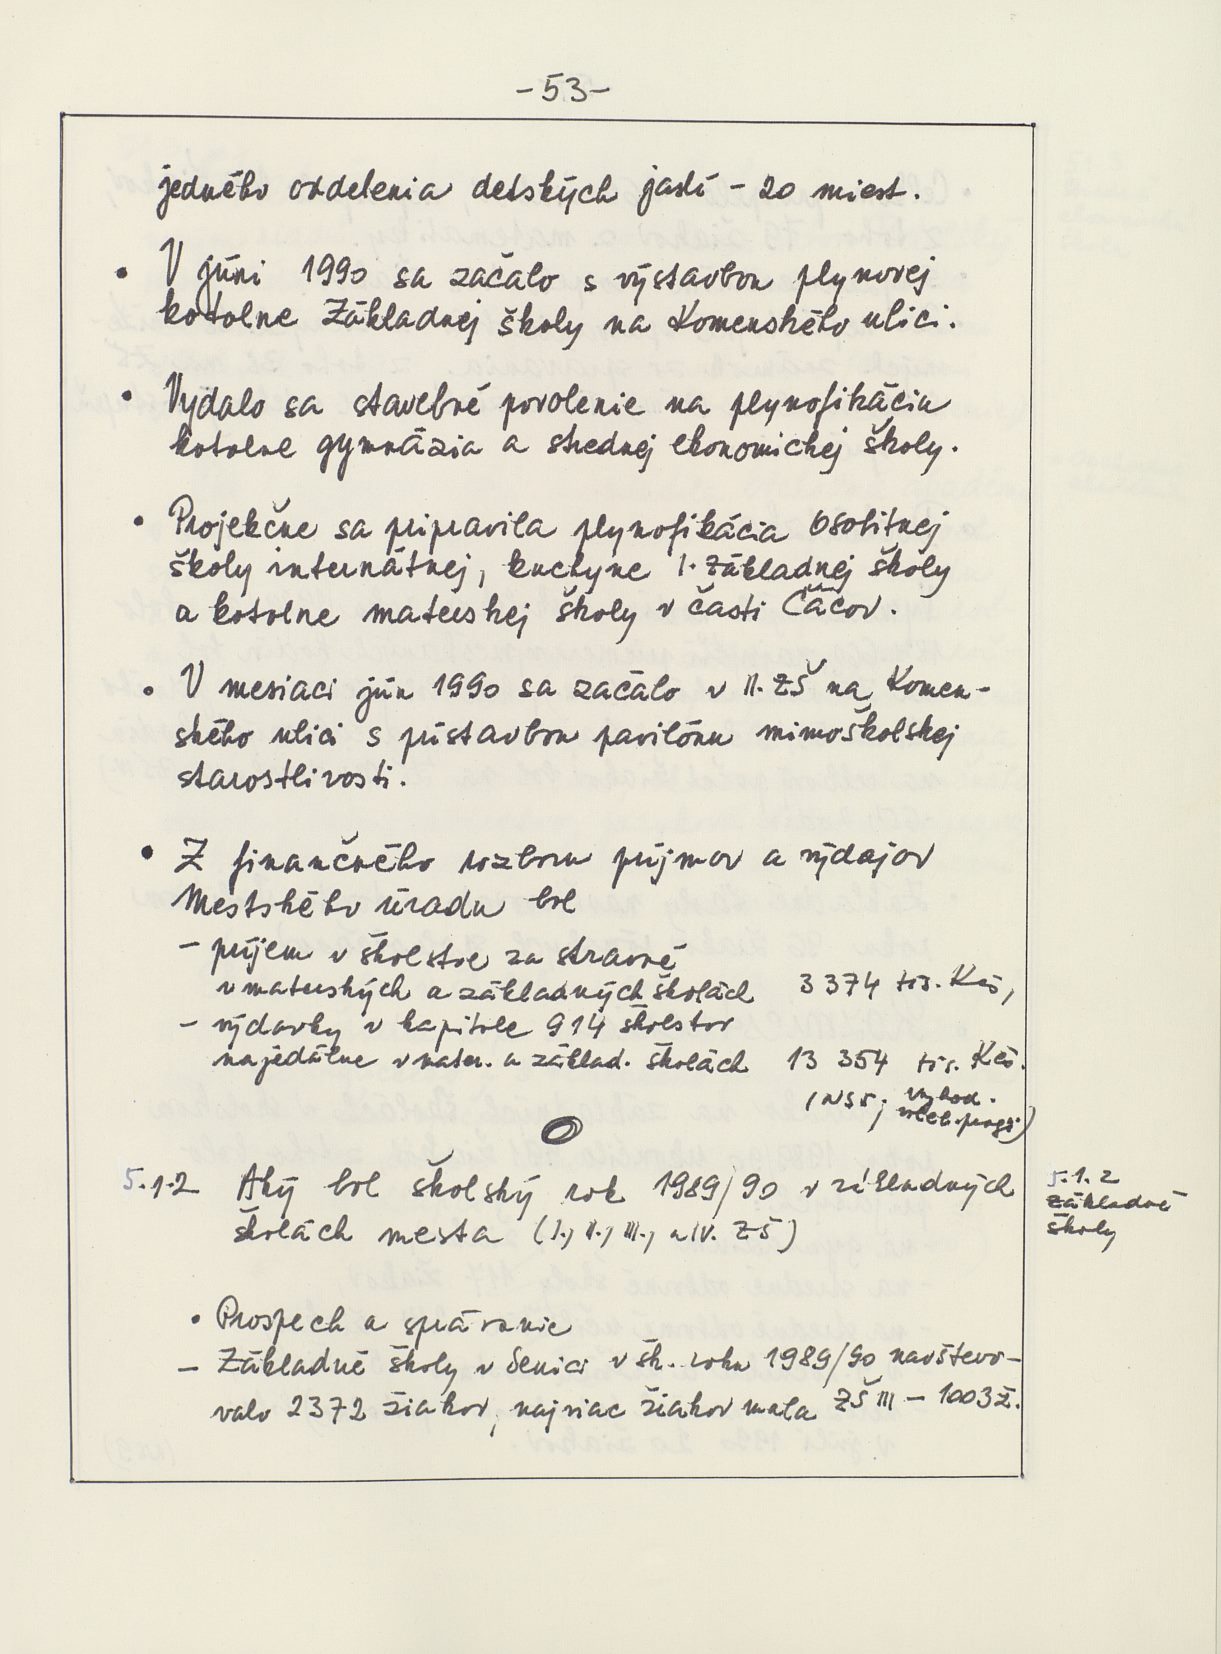 -53-
jedného oddelenia detských jaslí - 20 miest.
• V júni 1990 sa začalo s výstavbou plynovej
kotolne Základnej školy na Komenského ulici.
• Vydalo sa stavebné povolenie na plynofikáciu
kotolne gymnázia a strednej ekonomickej školy.
• Projekčne sa pripravila plynofikácia Osobitnej
školy internátnej, kuchyne I. Základnej školy
a kotolne materskej školy v časti Čáčov.
• V mesiaci jún 1990 sa začalo v II. ZŠ na Komen-
ského ulici s prístavbou pavilónu mimoškolskej
starostlivosti.
• Z finančného rozboru príjmov a výdajov
Mestského úradu bol
- príjem v školstve za stravné
v materských a základných školách 3 374 tis. Kčs,
- výdavky v kapitole 914 školstvo
na jedálne v mater. a základ. školách 13 354 tis. Kčs.
vyhod.
5.1.2 Aký bol školský rok 1989/90 v základných
školách mesta (I., II., III., a IV. ZŠ)
5.1.2
Základné
školy
• Prospech a správanie
- Základné školy v Senici v šk. roku 1989/90 navštevo-
valo 2372 žiakov, najviac žiakov mala ZŠ III - 1003 ž.